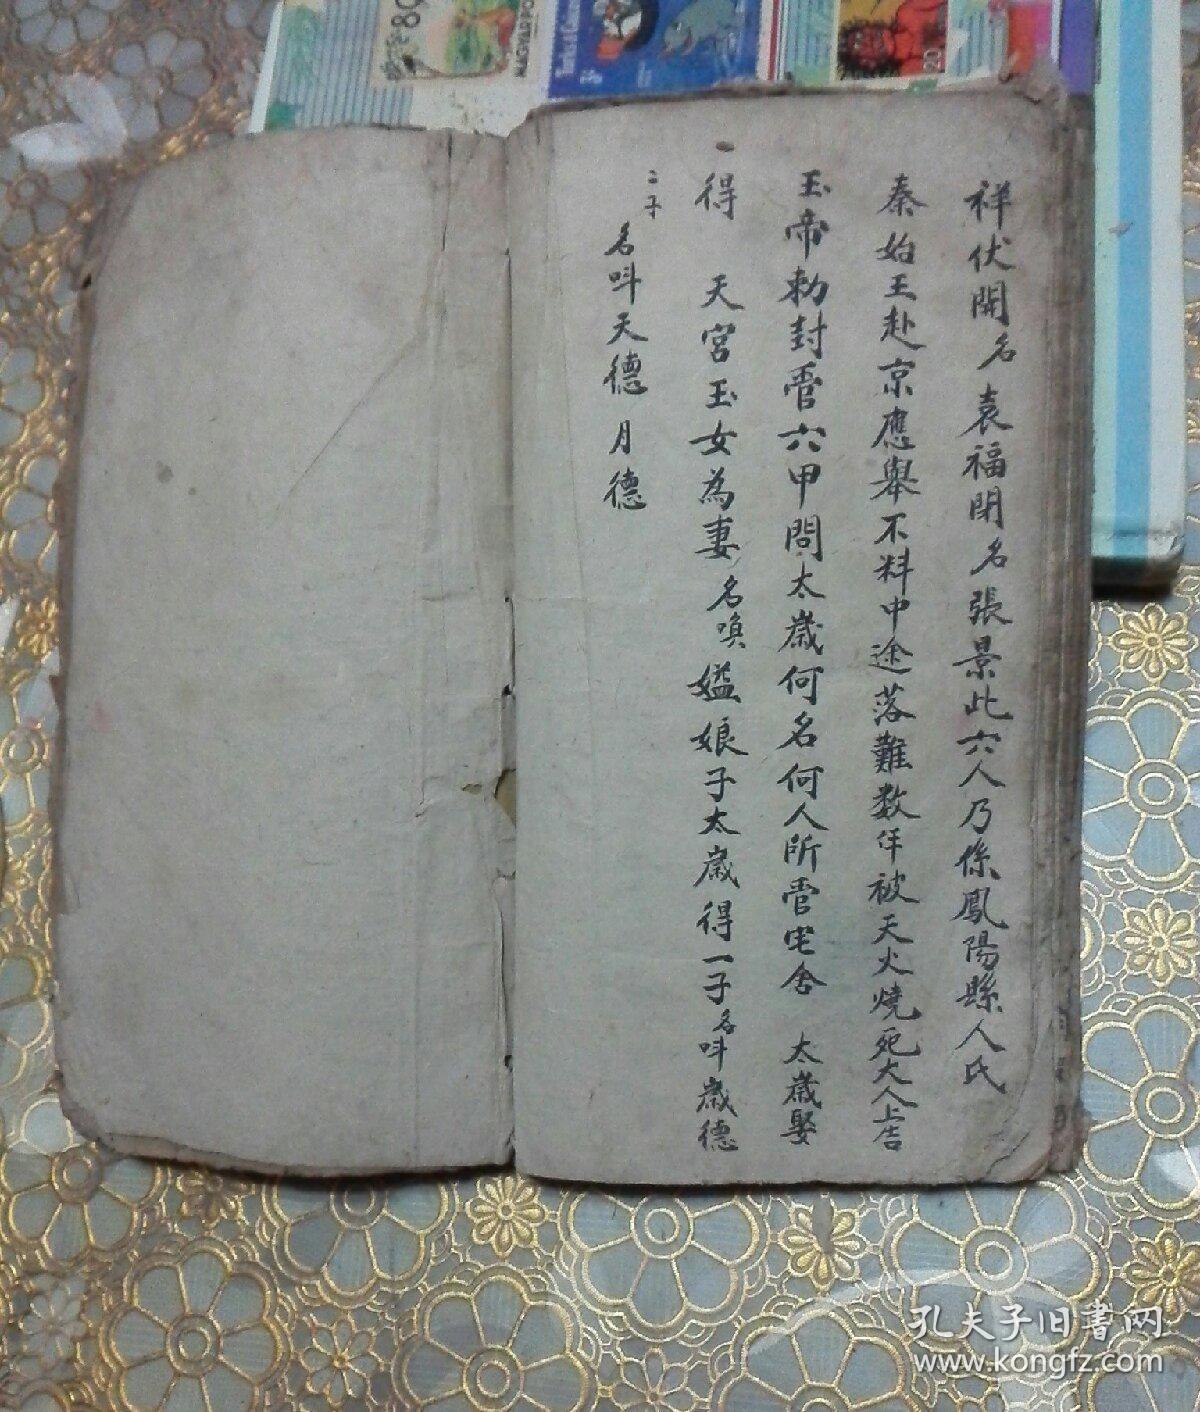 祥伏開名袁福閉名張景此六人乃係鳳陽縣人氏
秦始王赴京應舉不料中途落難数年被天火燒死大人上告
玉帝勅封管六甲問太歲何名何人所管宅舍 太歲娶
得 天宮玉女為妻名喚嫗娘子太歲得一子名呌歲德
二子
名呌天德月德
MAGYAR PO
孔夫子旧書网
www.kongfz.com